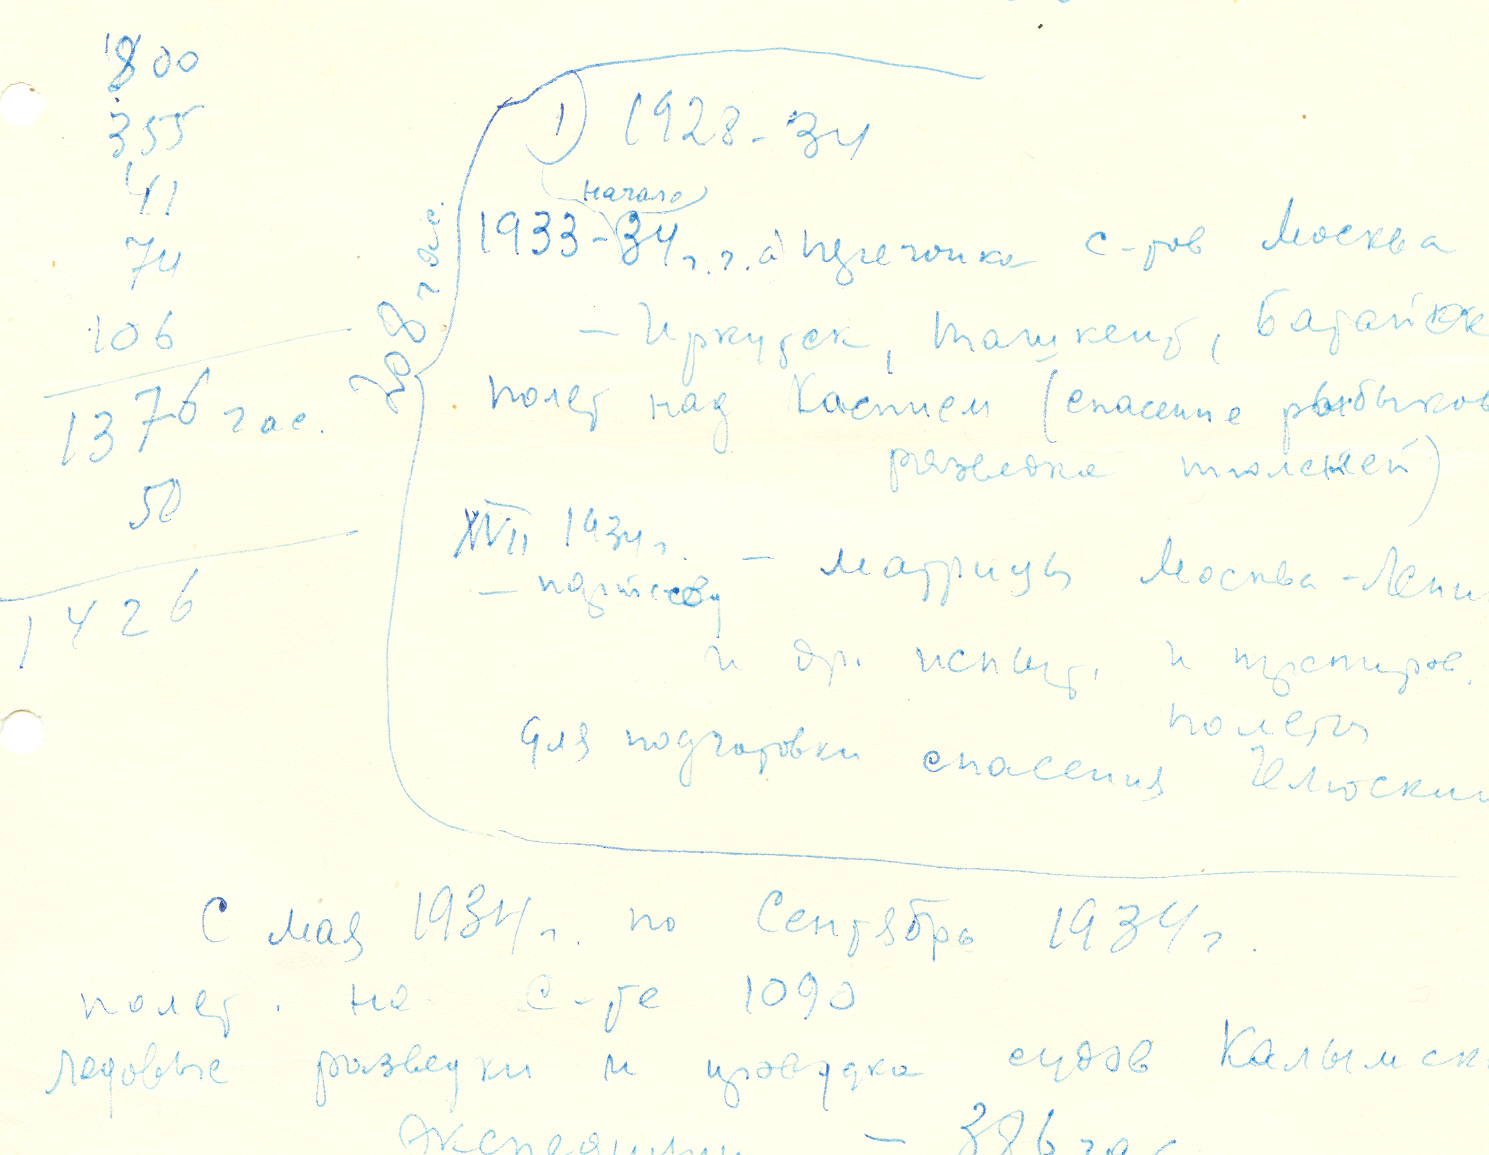 800
355
41
74
106
1376 час.
50
1426
208 час.
1) 1928-34
начало
1933-34 г.г. а) перегонка с-тов Москва
- Иркутск, Ташкент, Батайск
полет над Каспием (спасение рыбаков
разведка тюленей)
1934 г. - матрицы Москва-Ленин
-
и др. испыт. и трениров.
полеты
для подготовки спасения Челюскин
С мая 1934 г. по Сентябрь 1934 г.
полет. на С-те 1090
Ледовые разведки и проводка судов Калымск
экспедиции - 386 час